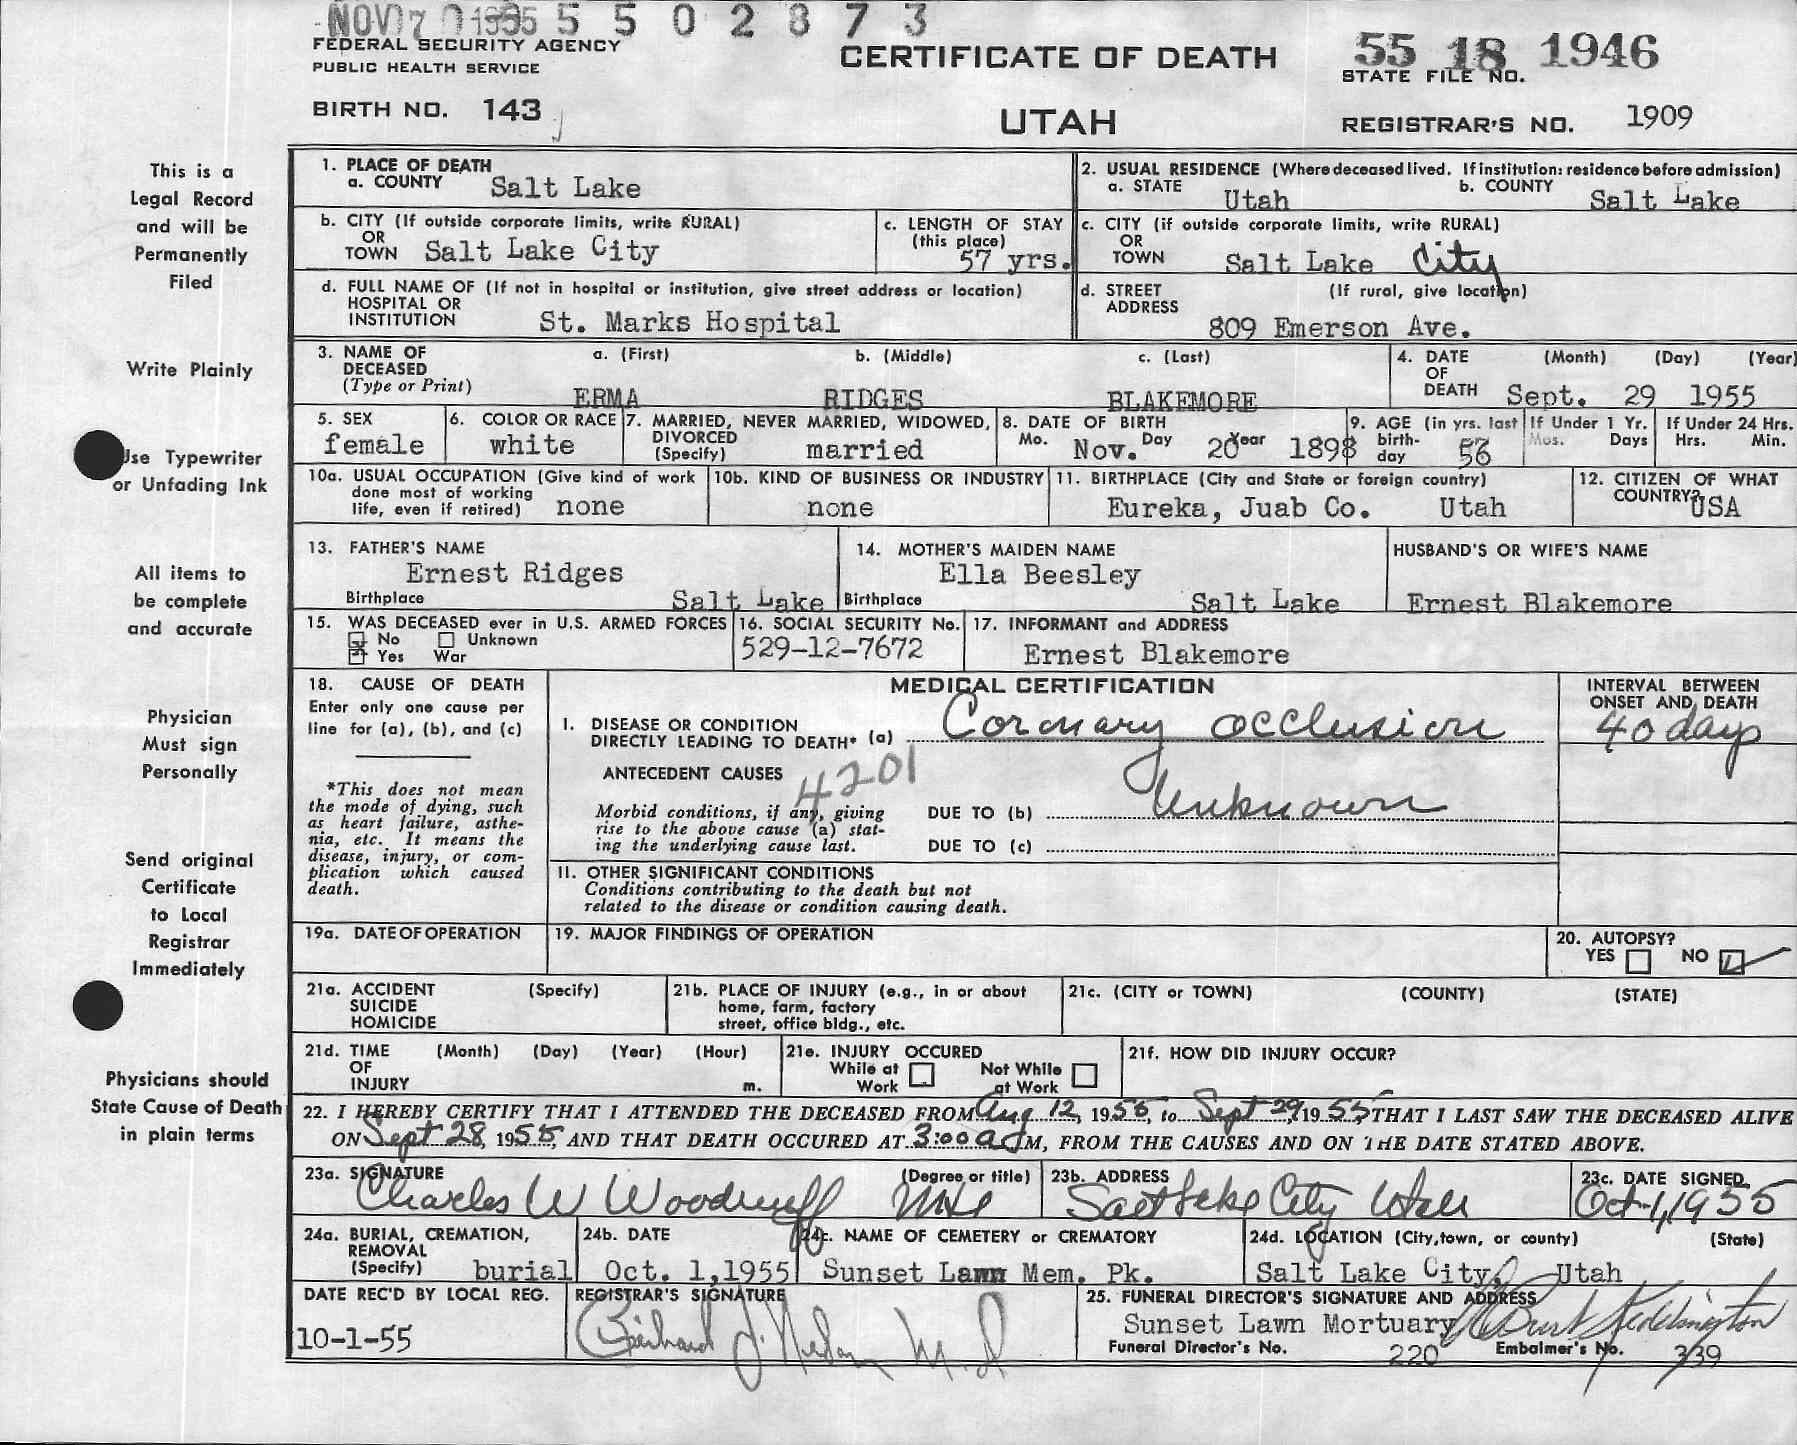 NOV 7 1955 5 5 0 2 8 7 3
FEDERAL SECURITY AGENCY
PUBLIC HEALTH SERVICE
CERTIFICATE OF DEATH
55 18 1946
STATE FILE NO.
BIRTH NO. 143
UTAH
REGISTRAR'S NO. 1909
This is a
Legal Record
and will be
Permanently
Filed
Write Plainly
Use Typewriter
or Unfading Ink
All items to
be complete
and accurate
Physician
Must sign
Personally
Send original
Certificate
to Local
Registrar
Immediately
Physicians should
State Cause of Death
in plain terms
1. PLACE OF DEATH
a. COUNTY Salt Lake
2. USUAL RESIDENCE (Where deceased lived. If institution: residence before admission)
a. STATE Utah b. COUNTY Salt Lake
b. CITY (If outside corporate limits, write RURAL)
OR
TOWN Salt Lake City
c. LENGTH OF STAY
(this place)
57 yrs.
c. CITY (if outside corporate limits, write RURAL)
OR
TOWN Salt Lake City
d. FULL NAME OF (If not in hospital or institution, give street address or location)
HOSPITAL OR
INSTITUTION St. Marks Hospital
d. STREET (If rural, give location)
ADDRESS
809 Emerson Ave.
3. NAME OF
DECEASED
(Type or Print)
a. (First) b. (Middle) c. (Last)
ERMA RIDGES BLAKEMORE
4. DATE (Month) (Day) (Year)
OF
DEATH Sept. 29 1955
5. SEX
female
6. COLOR OR RACE
white
7. MARRIED, NEVER MARRIED, WIDOWED,
DIVORCED
(Specify) married
8. DATE OF BIRTH
Mo. Nov. Day 20 Year 1898
9. AGE (in yrs. last
birth-
day 56
If Under 1 Yr.
Mos. Days
If Under 24 Hrs.
Hrs. Min.
10a. USUAL OCCUPATION (Give kind of work
done most of working
life, even if retired) none
10b. KIND OF BUSINESS OR INDUSTRY
none
11. BIRTHPLACE (City and State or foreign country)
Eureka, Juab Co. Utah
12. CITIZEN OF WHAT
COUNTRY? USA
13. FATHER'S NAME
Ernest Ridges
Birthplace Salt Lake
14. MOTHER'S MAIDEN NAME
Ella Beesley
Birthplace Salt Lake
HUSBAND'S OR WIFE'S NAME
Ernest Blakemore
15. WAS DECEASED ever in U.S. ARMED FORCES
No Unknown
Yes War
16. SOCIAL SECURITY No.
529-12-7672
17. INFORMANT and ADDRESS
Ernest Blakemore
18. CAUSE OF DEATH
Enter only one cause per
line for (a), (b), and (c)
*This does not mean
the mode of dying, such
as heart failure, asthe-
nia, etc. It means the
disease, injury, or com-
plication which caused
death.
MEDICAL CERTIFICATION
I. DISEASE OR CONDITION
DIRECTLY LEADING TO DEATH* (a) Coronary occlusion
INTERVAL BETWEEN
ONSET AND DEATH
40 days
ANTECEDENT CAUSES 4201
Morbid conditions, if any, giving
rise to the above cause (a) stat-
ing the underlying cause last.
DUE TO (b) Unknown
DUE TO (c)
II. OTHER SIGNIFICANT CONDITIONS
Conditions contributing to the death but not
related to the disease or condition causing death.
19a. DATE OF OPERATION
19. MAJOR FINDINGS OF OPERATION
20. AUTOPSY?
YES NO
21a. ACCIDENT (Specify)
SUICIDE
HOMICIDE
21b. PLACE OF INJURY (e.g., in or about
home, farm, factory
street, office bldg., etc.
21c. (CITY or TOWN) (COUNTY) (STATE)
21d. TIME (Month) (Day) (Year) (Hour)
OF
INJURY m.
21e. INJURY OCCURED
While at Work Not While at Work
21f. HOW DID INJURY OCCUR?
22. I HEREBY CERTIFY THAT I ATTENDED THE DECEASED FROM Aug 12, 1955, to Sept 29, 1955 THAT I LAST SAW THE DECEASED ALIVE
ON Sept 28, 1955, AND THAT DEATH OCCURED AT 3:00 a M, FROM THE CAUSES AND ON THE DATE STATED ABOVE.
23a. SIGNATURE (Degree or title)
Charles W Woodruff MD
23b. ADDRESS
Salt Lake City Utah
23c. DATE SIGNED
Oct 1, 1955
24a. BURIAL, CREMATION,
REMOVAL
(Specify) burial
24b. DATE
Oct. 1,1955
24c. NAME OF CEMETERY or CREMATORY
Sunset Lawn Mem. Pk.
24d. LOCATION (City, town, or county) (State)
Salt Lake City, Utah
DATE REC'D BY LOCAL REG.
10-1-55
REGISTRAR'S SIGNATURE
M.D
25. FUNERAL DIRECTOR'S SIGNATURE AND ADDRESS
Sunset Lawn Mortuary
Funeral Director's No. 220 Embalmer's No. 339